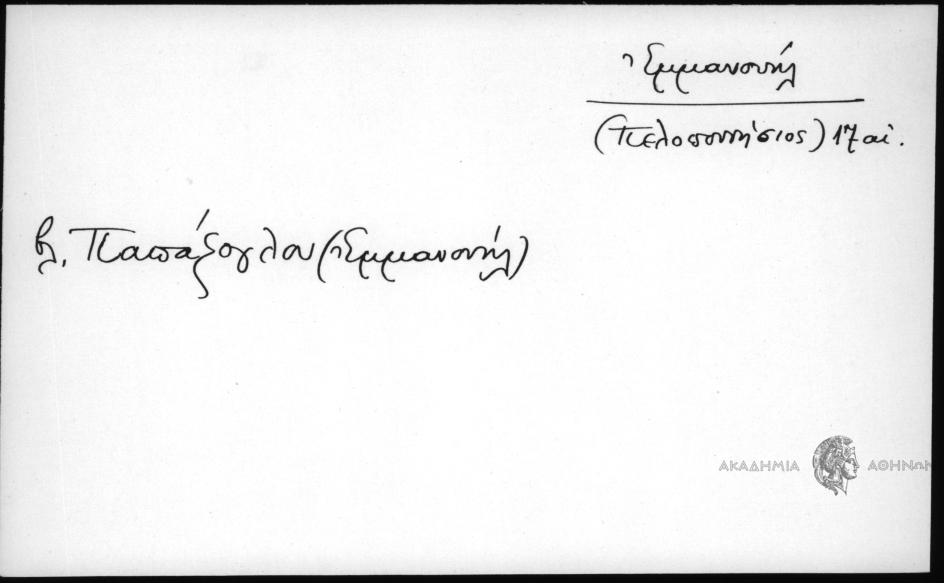 Ἐμμανουήλ
(Πελοποννήσιος) 17 αἰ.
βλ. Παπάζογλου (Ἐμμανουήλ)
ΑΚΑΔΗΜΙΑ ΑΘΗΝΩΝ